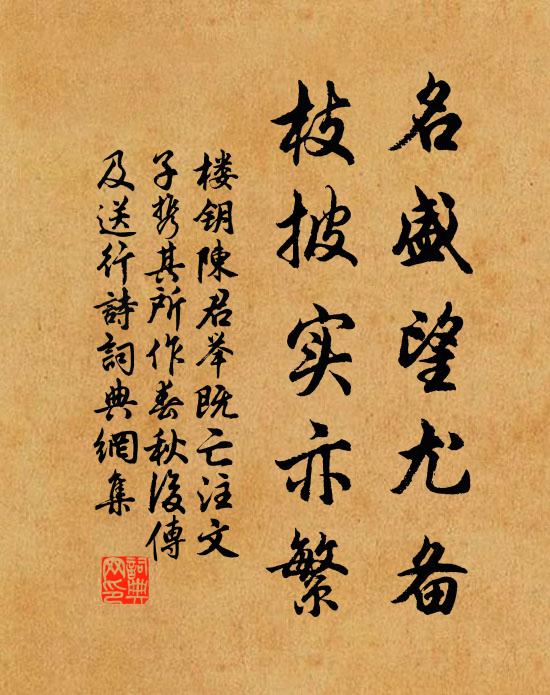 名盛望尤备
枝披实亦繁
楼钥陳君举既亡注文
子携其所作春秋後傳
及送行詩詞典網集
詞典網印